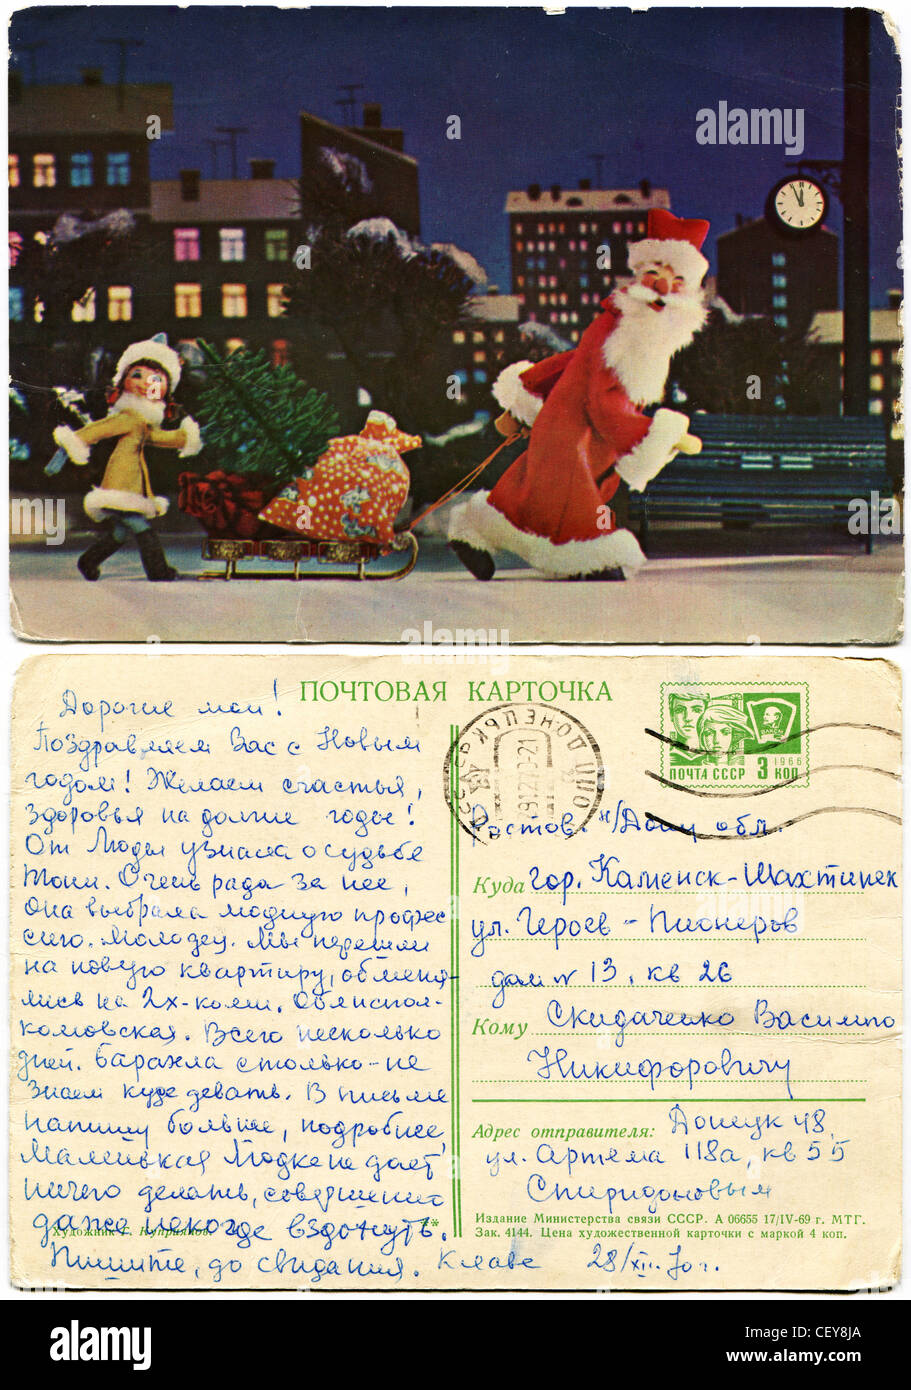 alamy
ПОЧТОВАЯ КАРТОЧКА
Дорогие мои!
Поздравляем Вас с Новым
годом! Желаем счастья,
здоровья на долгие годы!
От Люды узнала о судьбе
Тони. Очень рада за нее,
она выбрала модную профес
сию. Молодец. Мы перешли
на новую квартиру, обменя-
лись на 2х-комн.
комовская. Всего несколько
дней. Барахла столько-не
знаем куда девать. В письме
напишу больше, подробнее,
Маленькая Людка не дает
ничего делать, совершенно
даже некогда вздохнуть.
Художник Г. Куприянов. **
Пишите, до свидания. Клава 28/XII-70г.
ПОЧТА СССР 3 КОП
1966
ВЛКСМ
Ростов. н/Дону обл.
Куда гор. Каменск-Шахтинск
ул. Героев-Пионеров
дом № 13, кв 26
Кому Скидаченко Василию
Никифоровичу
Адрес отправителя: Донецк 48,
ул. Артема 118а, кв 55
Спиридоновым
Издание Министерства связи СССР. А 06655 17/IV-69 г. МТГ.
Зак. 4144. Цена художественной карточки с маркой 4 коп.
alamy
Image ID: CEY8JA
www.alamy.com